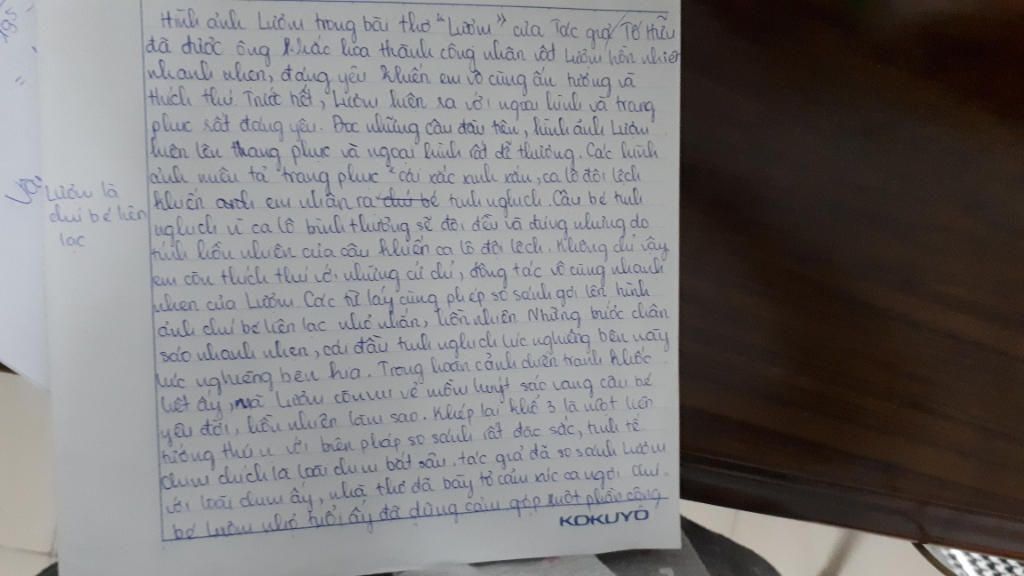 Hình ảnh Lượm trong bài thơ "Lượm" của Tác giả/Tố Hữu
đã được ông khắc hoạ thành công nhân vật Lượm hồn nhiên
nhanh nhẹn, đáng yêu khiến em vô cùng ấn tượng và
thích thú. Trước hết, Lượm hiện ra với ngoại hình và trang
phục rất đáng yêu. Đọc những câu đầu tiên, hình ảnh Lượm
hiện lên trang phục và ngoại hình rất dễ thương. Các hình
ảnh miêu tả trang phục "cái xắc xinh xắn, ca lô đội lệch
khiến em nhận ra chú bé tinh nghịch. Cậu bé tinh
nghịch vì ca lô bình thường sẽ đội đều và đúng nhưng do
tính hồn nhiên của cậu khiến ca lô đội lệch. Không chỉ vậy
em còn thích thú với những cử chỉ, động tác vô cùng nhanh
nhẹn của Lượm. Các từ láy cùng phép so sánh gợi lên hình
ảnh chú bé liên lạc nhỏ nhắn, hồn nhiên. Những bước chân
sáo nhanh nhẹn, cái đầu tinh nghịch lúc nghiêng bên này
lúc nghiêng bên kia. Trong hoàn cảnh chiến tranh khốc
liệt ấy, mà Lượm còn vui vẻ mồm huýt sáo vang cậu bé
yêu đời, hồn nhiên làm sao. Khép lại khổ 3 là một liên
tưởng thú vị với biện pháp so sánh rất đặc sắc, tinh tế
chim chích là loài chim bắt sâu. tác giả đã so sánh Lượm
với loài chim ấy, nhà thơ đã bày tỏ cảm xúc ca ngợi chú
bé Lượm nhỏ tuổi ấy đã dũng cảm góp một phần công
Lượm là
chú bé liên
lạc
KOKUYO